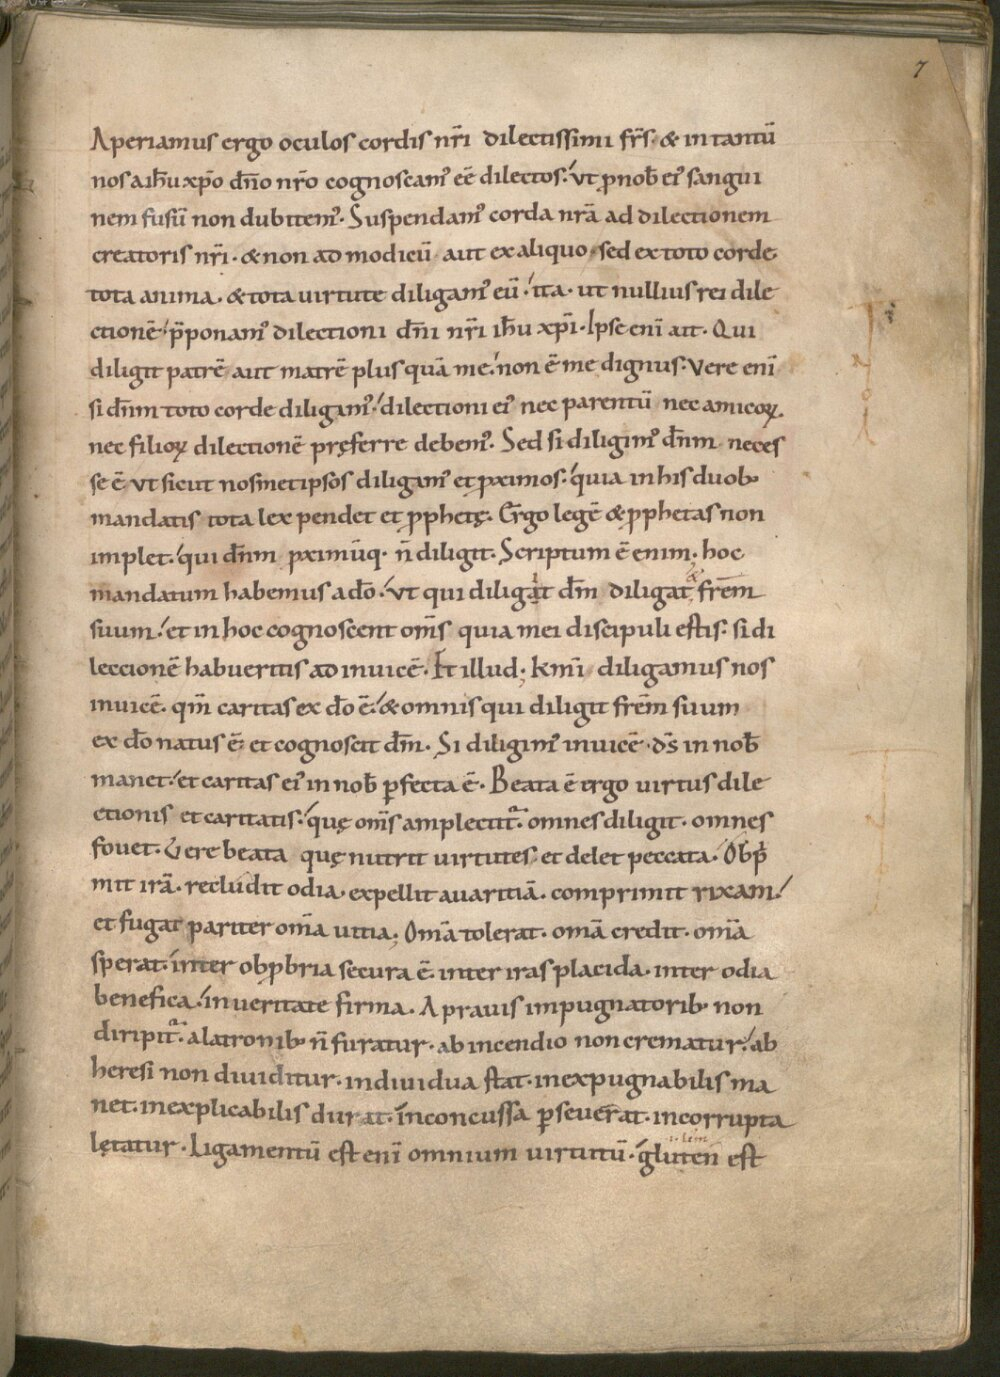 7
Aperiamus ergo oculos cordis nr̄i dilectissimi fr̄s · & in tantū
nos a ih̄u xp̄o dn̄o nr̄o cognoscam᾽ eē dilectos ·᾽ ut ꝓ nob̄ ei᾽ sangui
nem fusū non dubitem᾽ · Suspendam᾽ corda nr̄a ad dilectionem
creatoris nr̄i · & non ad modicū aut ex aliquo · sed ex toto corde
tota anima · & tota uirtute diligam᾽ eū ·᾽ ita · ut nullius rei dile
ctionē p̄ponam᾽ dilectioni dn̄i nr̄i ih̄u xp̄i · Ipse enī ait · Qui
diligit patrē aut matrē plus quā me ·᾽ non ē me dignus · Vere enī
si dn̄m toto corde diligam᾽ ·᾽ dilectioni ei᾽ nec parentū nec amicoꝝ
nec filioꝝ dilectionē pręferre debem᾽ · Sed si diligim᾽ dn̄m neces
se ē ut sicut nosmetipsos diligam᾽ et ꝓximos ·᾽ quia in his duob;
mandatis tota lex pendet et ꝓphetę · Ergo legē & ꝓphetas non
implet ·᾽ qui dn̄m ꝓximūq· n̄ diligit · Scriptum ē enim · hoc
mandatum habemus a dō ·᾽ ut qui diligit dm̄ diligat & frēm
suum ·᾽ et in hoc cognoscent om̄s quia mei discipuli estis · si di
leccionē habueritis ad inuicē · Et illud ; Km̄i diligamus nos
inuicē · qm̄ caritas ex dō ē ·᾽ & omnis qui diligit frēm suum
ex dō natus ē · et cognoscit dm̄ · Si diligim᾽ inuicē · ds̄ in nob̄
manet ·᾽ et caritas ei᾽ in nob̄ ꝑfecta ē · Beata ē ergo uirtus dile
ctionis et caritatis ·᾽ quę om̄s amplectit᷑ · omnes diligit · omnes
fouet · Vere beata quę nutrit uirtutes · et delet peccata · Obp̄
mit irā · recludit odia · expellit auaritiā · comprimit rixam ·᾽
et fugat pariter om̄a uitia ; Om̄a tolerat · om̄a credit · om̄a
sperat · inter obꝓbria secura ē · inter iras placida · inter odia
benefica ·᾽ in ueritate firma · A prauis impugnatorib; non
diripit᷑ · a latronib; n̄ furatur · ab incendio non crematur ·᾽ ab
heresi non diuiditur · indiuidua stat · inexpugnabilis ma
net · inexplicabilis durat · inconcussa ꝑseuerat · incorrupta
lętatur · Ligamentū est enī omnium uirtutū ·᾽ gluten est